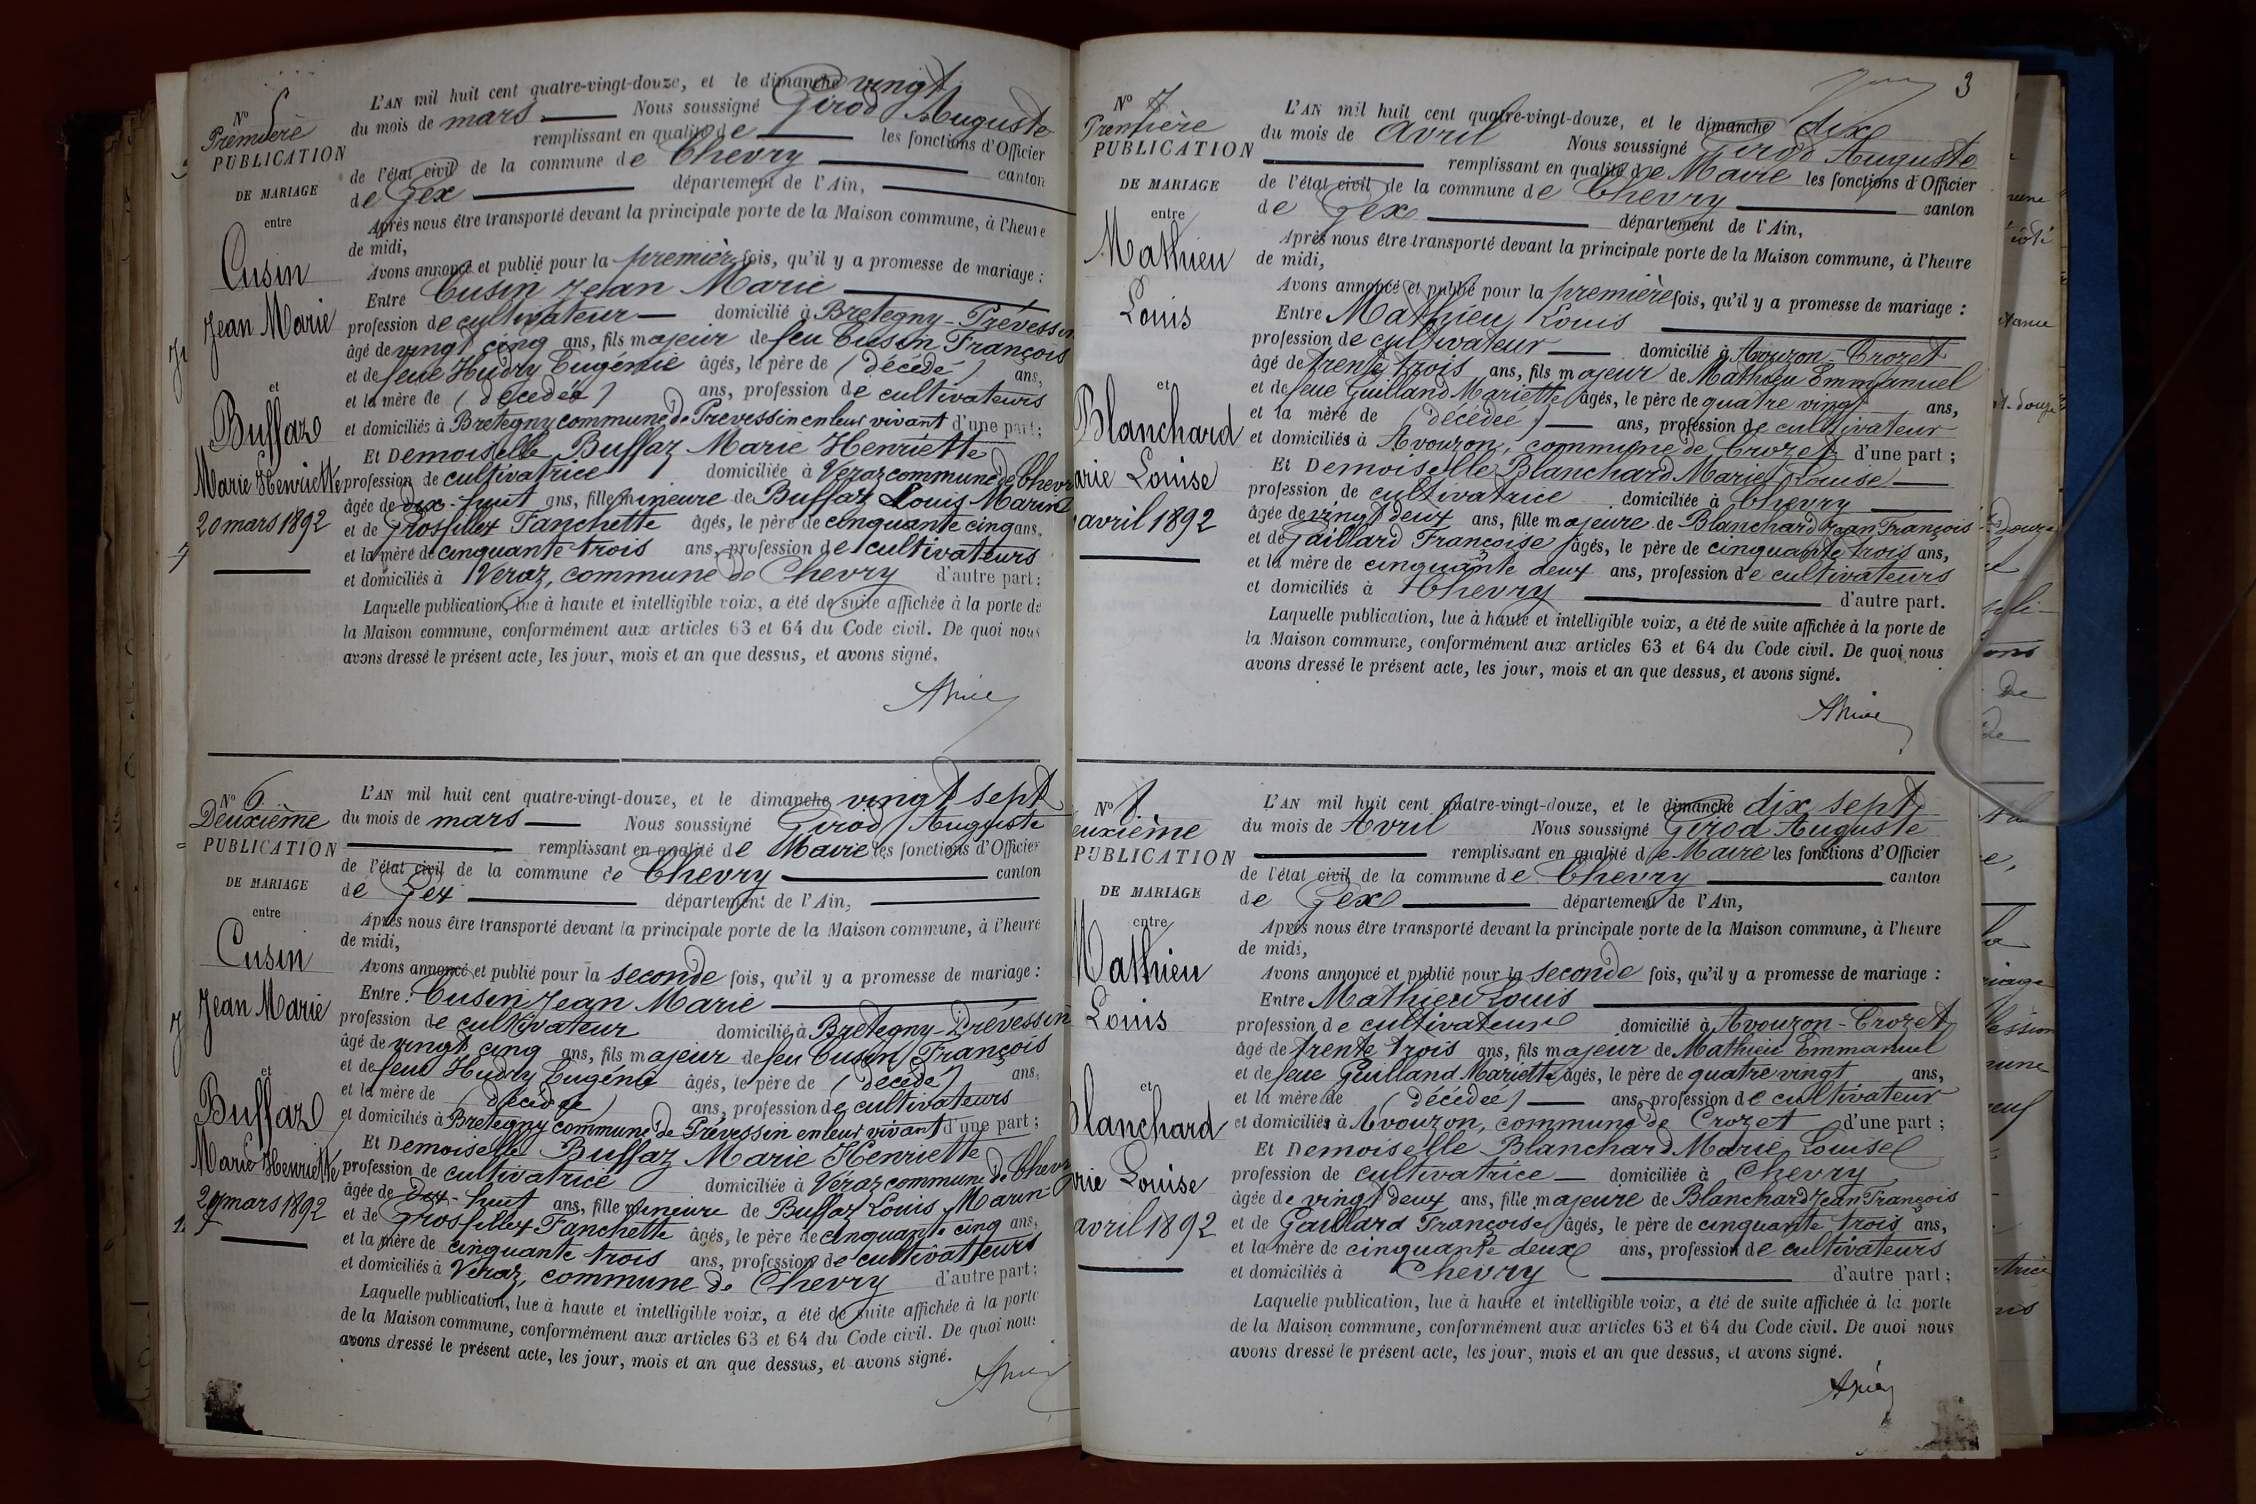 N° 5
Première
PUBLICATION
DE MARIAGE
entre
Cusin
Jean Marie
et
Buffaz
Marie Henriette
20 mars 1892
L'AN mil huit cent quatre-vingt-douze, et le dimanche vingt
du mois de mars Nous soussigné Girod Auguste
remplissant en qualité de les fonctions d'Officier
de l'état civil de la commune de Chevry canton
de Gex département de l'Ain,
Après nous être transporté devant la principale porte de la Maison commune, à l'heure
de midi,
Avons annoncé et publié pour la première fois, qu'il y a promesse de mariage :
Entre Cusin Jean Marie
profession de cultivateur domicilié à Bretegny - Prévessin
âgé de vingt cinq ans, fils majeur de feu Cusin François
et de feue Hudry Eugénie âgés, le père de (décédé) ans,
et la mère de (décédée) ans, profession de cultivateurs
et domiciliés à Bretegny commune de Prévessin en leur vivant d'une part ;
Et Demoiselle Buffaz Marie Henriette
profession de cultivatrice domiciliée à Véraz commune de Chevry
âgée de dix-huit ans, fille mineure de Buffaz Louis Marin
et de Grosfillex Fanchette âgés, le père de cinquante cinq ans,
et la mère de cinquante trois ans, profession de cultivateurs
et domiciliés à Véraz, commune de Chevry d'autre part ;
Laquelle publication, lue à haute et intelligible voix, a été de suite affichée à la porte de
la Maison commune, conformément aux articles 63 et 64 du Code civil. De quoi nous
avons dressé le présent acte, les jour, mois et an que dessus, et avons signé.
N° 6
Deuxième
PUBLICATION
DE MARIAGE
entre
Cusin
Jean Marie
et
Buffaz
Marie Henriette
27 mars 1892
L'AN mil huit cent quatre-vingt-douze, et le dimanche vingt sept
du mois de mars Nous soussigné Girod Auguste
remplissant en qualité de Maire les fonctions d'Officier
de l'état civil de la commune de Chevry canton
de Gex département de l'Ain,
Après nous être transporté devant la principale porte de la Maison commune, à l'heure
de midi,
Avons annoncé et publié pour la seconde fois, qu'il y a promesse de mariage :
Entre Cusin Jean Marie
profession de cultivateur domicilié à Bretegny - Prévessin
âgé de vingt cinq ans, fils majeur de feu Cusin François
et de feue Hudry Eugénie âgés, le père de (décédé) ans,
et la mère de (décédée) ans, profession de cultivateurs
et domiciliés à Bretegny commune de Prévessin en leur vivant d'une part ;
Et Demoiselle Buffaz Marie Henriette
profession de cultivatrice domiciliée à Véraz commune de Chevry
âgée de dix-huit ans, fille mineure de Buffaz Louis Marin
et de Grosfillex Fanchette âgés, le père de cinquante cinq ans,
et la mère de cinquante trois ans, profession de cultivateurs
et domiciliés à Véraz, commune de Chevry d'autre part ;
Laquelle publication, lue à haute et intelligible voix, a été de suite affichée à la porte
de la Maison commune, conformément aux articles 63 et 64 du Code civil. De quoi nous
avons dressé le présent acte, les jour, mois et an que dessus, et avons signé.
3
N° 7
Première
PUBLICATION
DE MARIAGE
entre
Mathieu
Louis
et
Blanchard
arie Louise
avril 1892
L'AN mil huit cent quatre-vingt-douze, et le dimanche dix
du mois de Avril Nous soussigné Girod Auguste
remplissant en qualité de Maire les fonctions d'Officier
de l'état civil de la commune de Chevry canton
de Gex département de l'Ain,
Après nous être transporté devant la principale porte de la Maison commune, à l'heure
de midi,
Avons annoncé et publié pour la première fois, qu'il y a promesse de mariage :
Entre Mathieu Louis
profession de cultivateur domicilié à Avouzon - Crozet
âgé de trente trois ans, fils majeur de Mathieu Emmanuel
et de feue Guilland Mariette âgés, le père de quatre vingt ans,
et la mère de (décédée) ans, profession de cultivateur
et domiciliés à Avouzon, commune de Crozet d'une part ;
Et Demoiselle Blanchard Marie Louise
profession de cultivatrice domiciliée à Chevry
âgée de vingt deux ans, fille majeure de Blanchard Jean François
et de Gaillard Françoise âgés, le père de cinquante trois ans,
et la mère de cinquante deux ans, profession de cultivateurs
et domiciliés à Chevry d'autre part.
Laquelle publication, lue à haute et intelligible voix, a été de suite affichée à la porte de
la Maison commune, conformément aux articles 63 et 64 du Code civil. De quoi nous
avons dressé le présent acte, les jour, mois et an que dessus, et avons signé.
N° 8
euxième
PUBLICATION
DE MARIAGE
entre
Mathieu
Louis
et
Blanchard
rie Louise
avril 1892
L'AN mil huit cent quatre-vingt-douze, et le dimanche dix sept
du mois de Avril Nous soussigné Girod Auguste
remplissant en qualité de Maire les fonctions d'Officier
de l'état civil de la commune de Chevry canton
de Gex département de l'Ain,
Après nous être transporté devant la principale porte de la Maison commune, à l'heure
de midi,
Avons annoncé et publié pour la seconde fois, qu'il y a promesse de mariage :
Entre Mathieu Louis
profession de cultivateur domicilié à Avouzon - Crozet
âgé de trente trois ans, fils majeur de Mathieu Emmanuel
et de feue Guilland Mariette âgés, le père de quatre vingt ans,
et la mère de (décédée) ans, profession de cultivateur
et domiciliés à Avouzon, commune de Crozet d'une part ;
Et Demoiselle Blanchard Marie Louise
profession de cultivatrice domiciliée à Chevry
âgée de vingt deux ans, fille majeure de Blanchard Jean François
et de Gaillard Françoise âgés, le père de cinquante trois ans,
et la mère de cinquante deux ans, profession de cultivateurs
et domiciliés à Chevry d'autre part ;
Laquelle publication, lue à haute et intelligible voix, a été de suite affichée à la porte
de la Maison commune, conformément aux articles 63 et 64 du Code civil. De quoi nous
avons dressé le présent acte, les jour, mois et an que dessus, et avons signé.